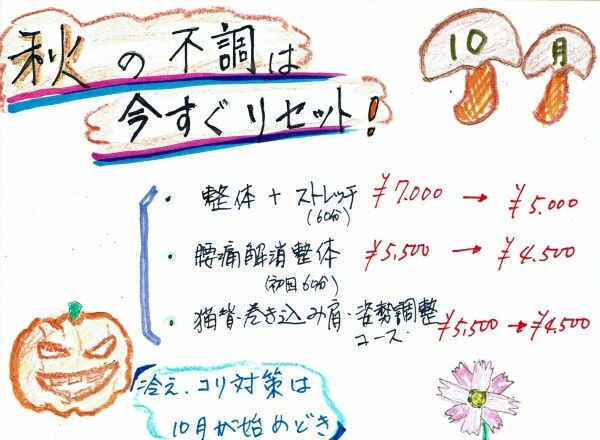 秋の不調は
今すぐリセット!
10月
・整体+ストレッチ ¥7.000 → ¥5.000
(60分)
・腰痛解消整体 ¥5,500 → ¥4.500
(初回60分)
・猫背・巻き込み肩・姿勢調整
コース・ ¥5,500 → ¥4,500
冷え、コリ対策は
10月が始めどき